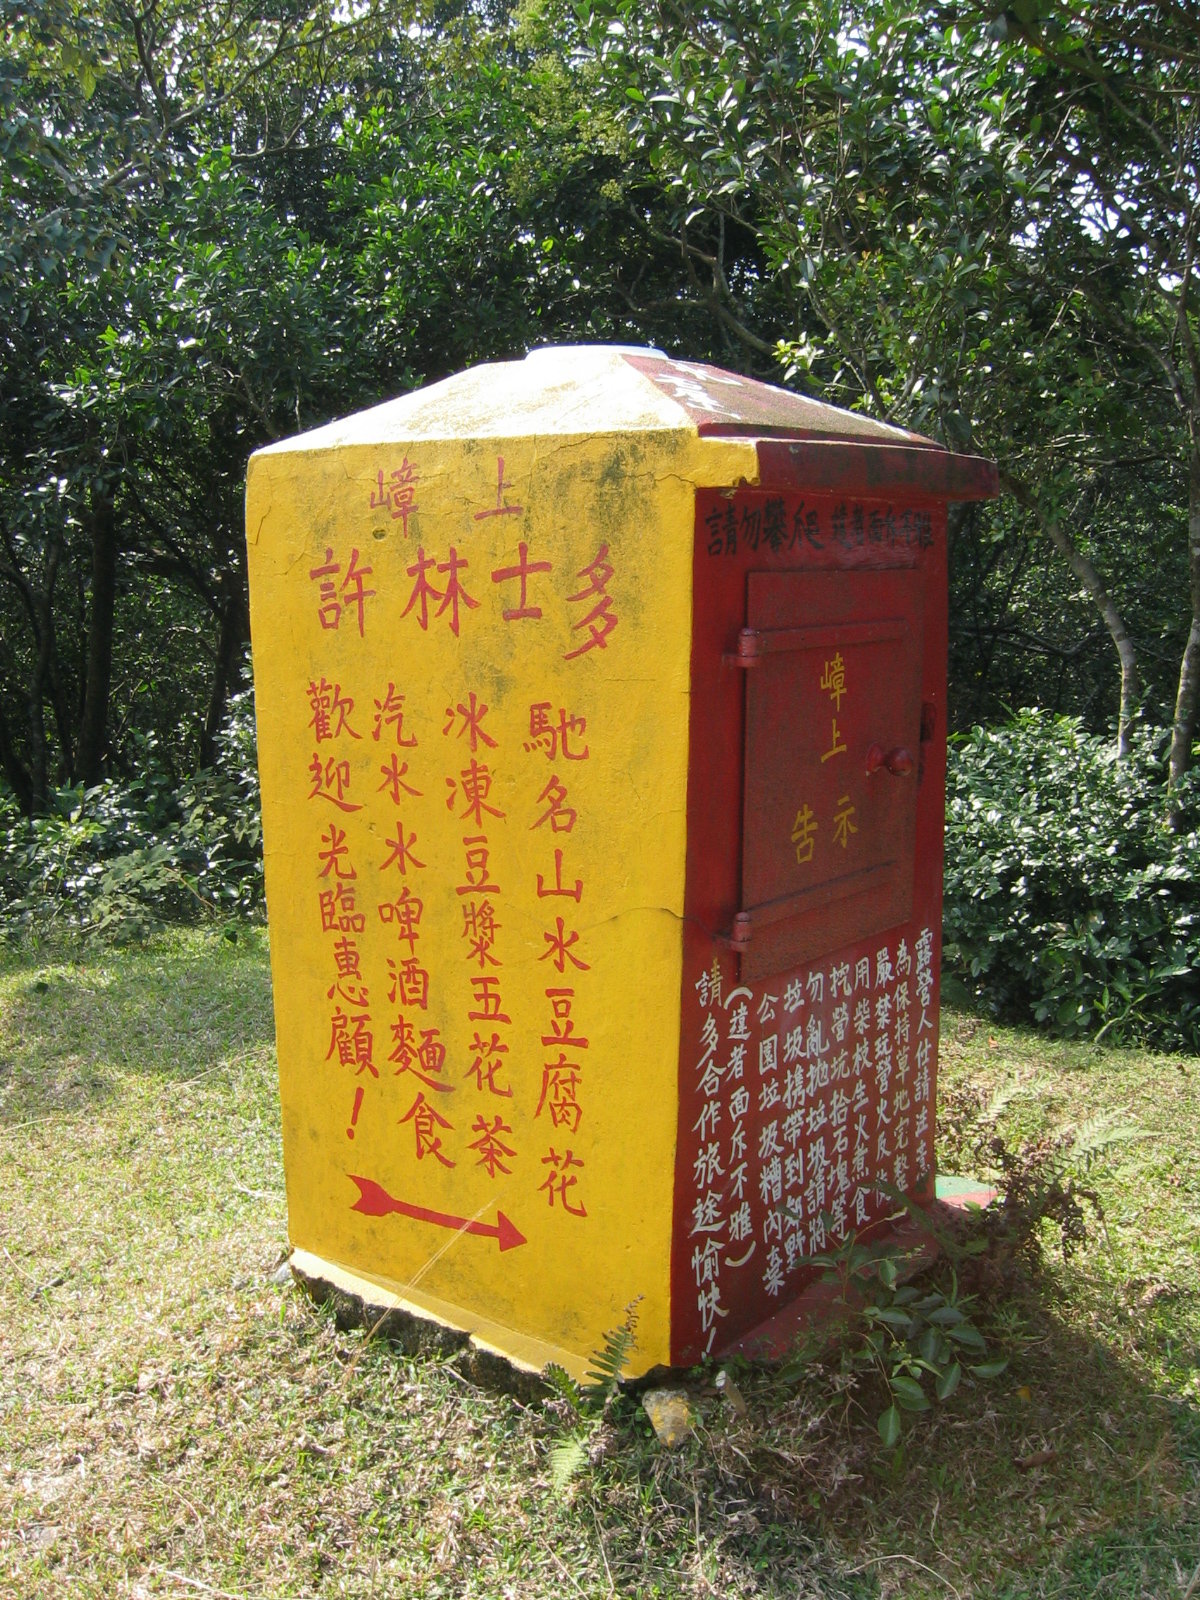 嶂上
許林士多
馳名山水豆腐花
冰凍豆漿五花茶
汽水水啤酒麵食
歡迎光臨惠顧！
請勿攀爬
嶂上
告示
露營人仕請注意
為保持草地完整
嚴禁玩營火及使
用柴枝生火煮食
挖營坑拾石塊等
勿亂拋垃圾請將
垃圾携帶到郊野
公園垃圾糟內棄
(違者面斥不雅)
請多合作旅途愉快！